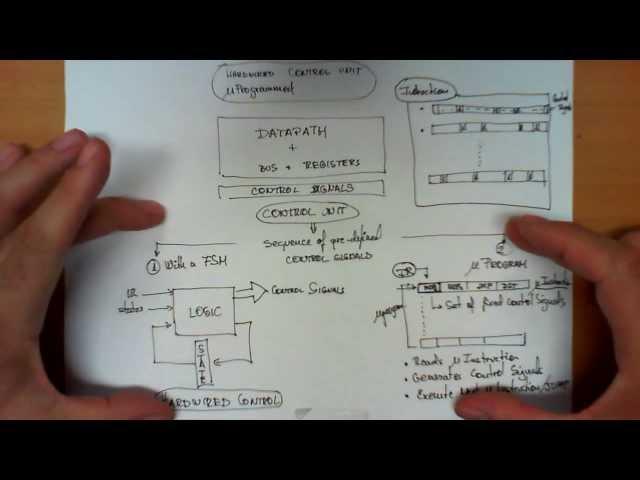 HARDWIRED CONTROL UNIT
μProgrammed
Instructions
Control
Signals
DATAPATH
+
BUS + REGISTERS
CONTROL SIGNALS
CONTROL UNIT
Sequence of pre-defined
CONTROL SIGNALS
1 With a FSM
IR
status
LOGIC
CONTROL SIGNALS
STATE
HARDWIRED CONTROL
2
μ PROGRAM
IR
μprogram
μ Instruction
Set of fixed control Signals
• Reads μ Instruction
• Generates Control Signals
• Execute Next μ Instruction/JUMP